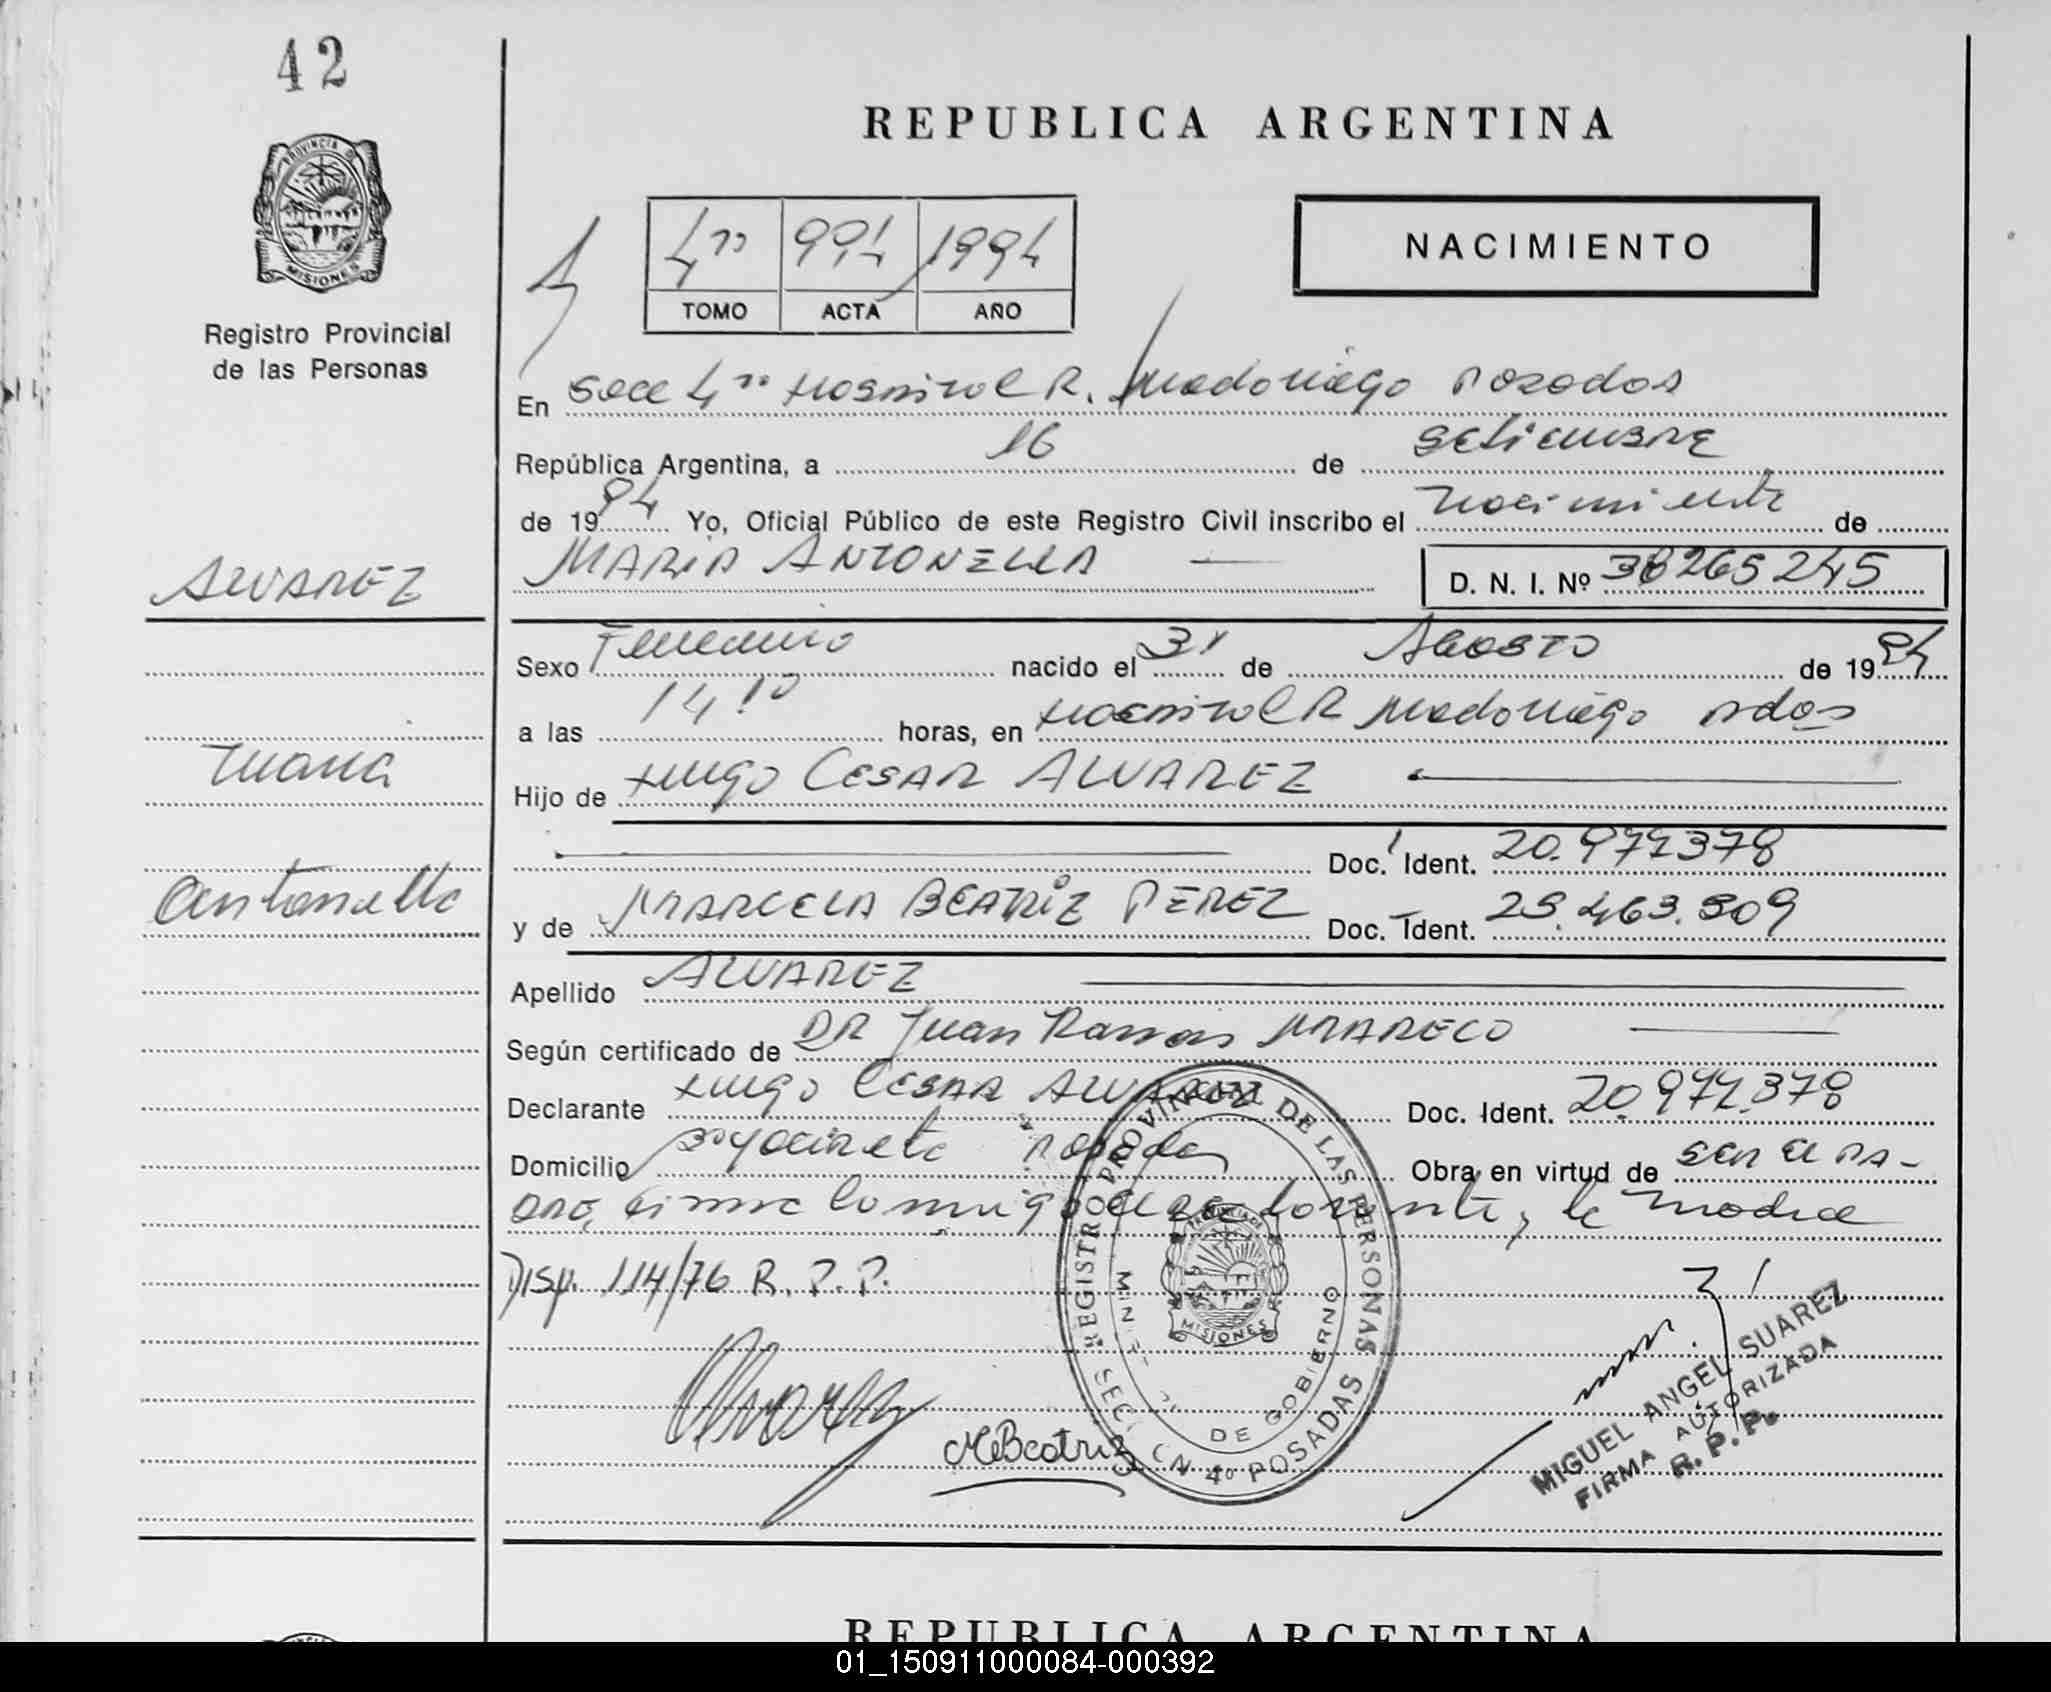 42
REPUBLICA ARGENTINA
PROVINCIA DE
MISIONES
Registro Provincial
de las Personas
4to 994 1994
TOMO ACTA AÑO
NACIMIENTO
En Secc 4to Hospital R. Madariaga Posadas
República Argentina, a 16 de setiembre
de 1994 Yo, Oficial Público de este Registro Civil inscribo el nacimiento de
MARIA ANTONELLA D. N. I. Nº 38265245
ALVAREZ
Sexo Femenino nacido el 31 de AGOSTO de 1994
a las 14 10 horas, en Hospital R Madariaga Pdas
Maria
Hijo de Hugo CESAR ALVAREZ
Doc. Ident. 20.977378
Antonella
y de MARCELA BEATRIZ PEREZ Doc. Ident. 23.463.309
Apellido ALVAREZ
Según certificado de DR Juan Ramon MARECO
Declarante Hugo CESAR ALVAREZ Doc. Ident. 20.977.378
Domicilio Yacireta Posadas Obra en virtud de ser el PA-
DRE, firma conmigo el declarante, la madre
Disp. 114/76 R. P. P.
Alvarez
MeBeatriz
REGISTRO PROVINCIAL DE LAS PERSONAS
DE GOBIERNO
MISIONES
4º POSADAS
MIGUEL ANGEL SUAREZ
FIRMA AUTORIZADA
R. P. P.
REPUBLICA ARGENTINA
01_150911000084-000392